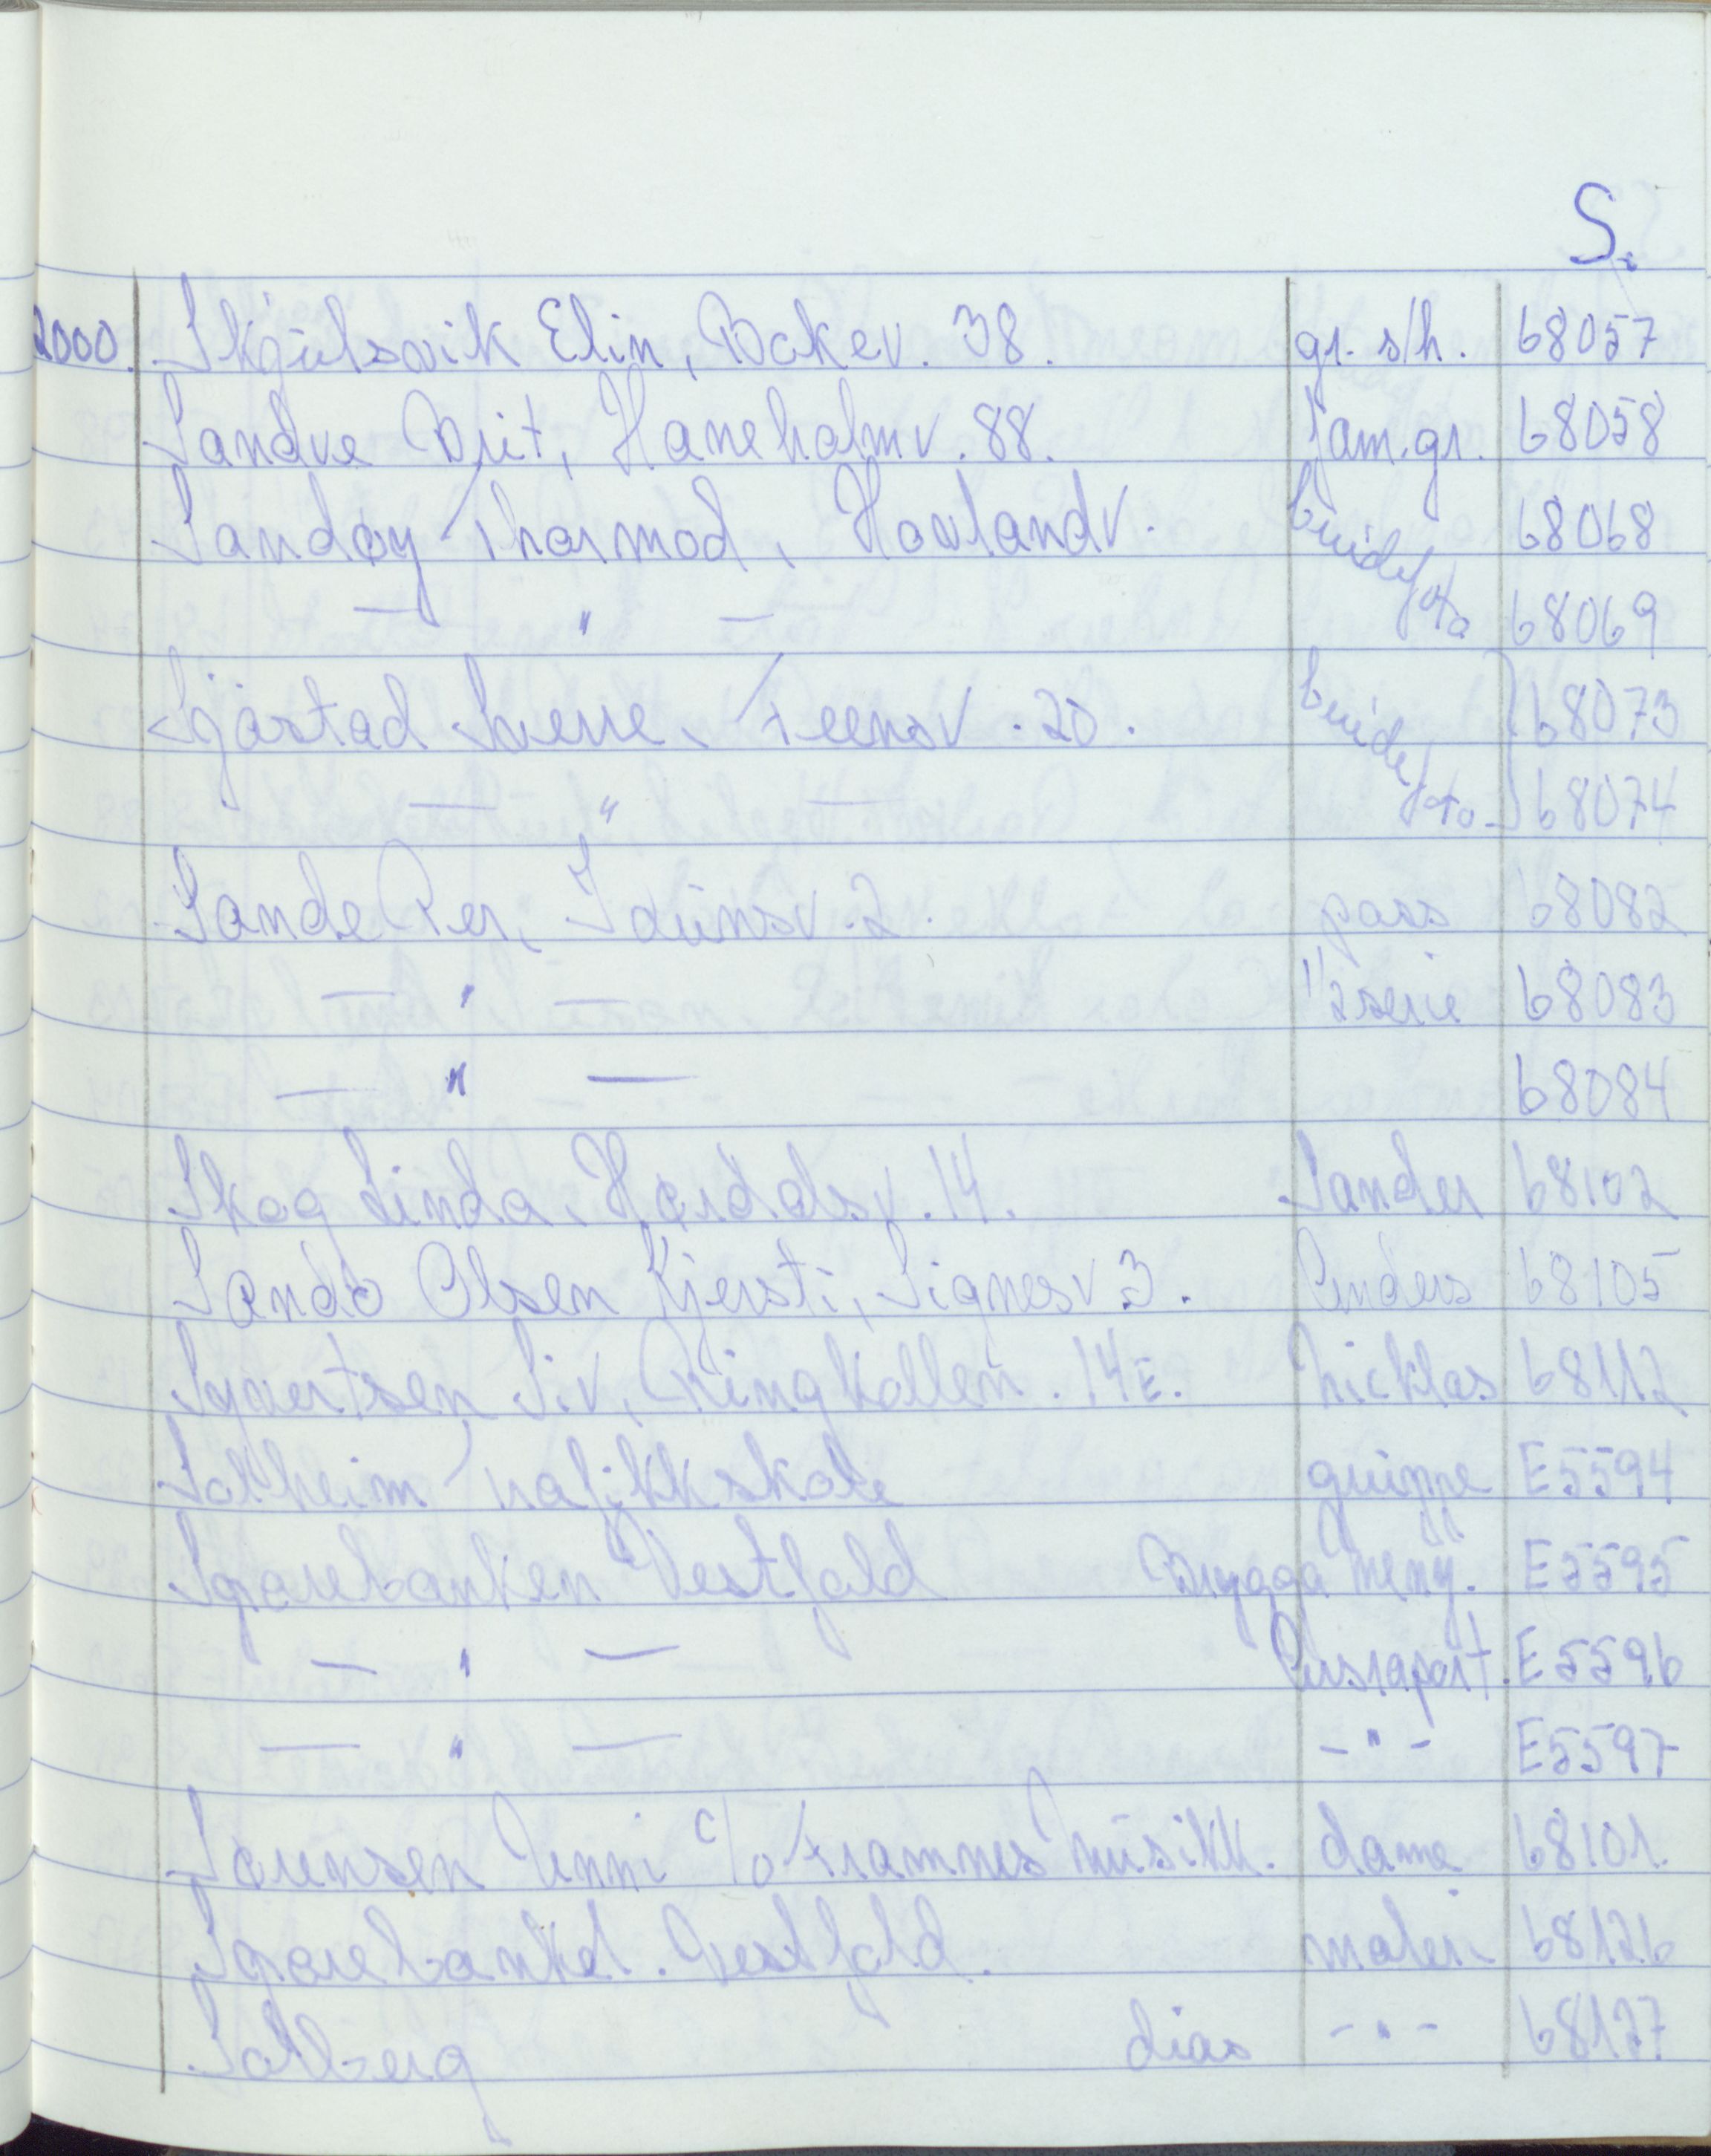 S.
2000. Skjelsvik Elin, Bekkev. 38. gr. s/h. 68057
Sandve Brit, Haneholmv. 88. fam.gr. 68058
Sandøy Thormod, Hovlandv. brudefoto 68068
— " — 68069
Sjøstad Sverre, Feensv. 20. brudefoto 68073
— " — 68074
Sande Per, Idunsv. 2. pass 68082
— " — 1/2 serie 68083
— " — 68084
Skog Linda, 14. Sander 68102
Sandø Olsen Kjersti, Signesv 3. Anders 68105
Syvertsen Siv, Ringkollen. 14E. Nicklas 68112
Solheim Trafikkskole gruppe E5594
Sparebanken Vestfold Brygga meny. E5595
— " — Årsraport. E5596
— " — -"- E5597
Sørensen Unni c/o Framnes Musikk. dame 68101.
Sparebanken. Vestfold. maleri 68126
Solberg dias -"- 68127